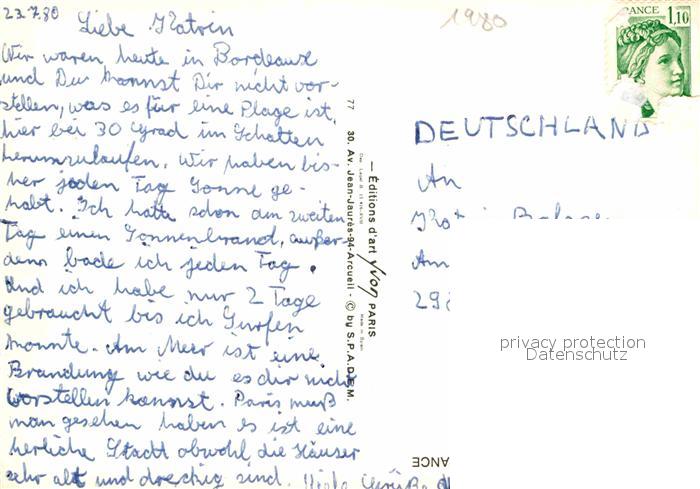 23.7.80
Liebe Katrin
Wir waren heute in Bordeaux
und Du kannst Dir nicht vor-
stellen, was es für eine Plage ist,
hier bei 30 Grad im Schatten
herumzulaufen. Wir haben bis-
her jeden Tag Sonne ge-
habt. Ich hatte schon am zweiten
Tag einen Sonnenbrand, außer-
dem bade ich jeden Tag.
Und ich habe nur 2 Tage
gebraucht bis ich Surfen
konnte. Am Meer ist eine
Brandung wie du es dir nicht
vorstellen kannst. Paris muß
man gesehen haben es ist eine
herliche Stadt obwohl die Häuser
sehr alt und dreckig sind. Viele Grüße
77 30, Av. Jean-Jaurès-94-Arcueil - © by S.P.A.D.E.M.
— Éditions d'art yvon PARIS
1980
FRANCE
1,10
DEUTSCHLAND
An
Am
privacy protection
Datenschutz
ANCE